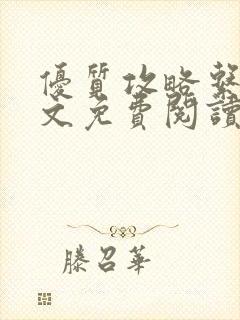 優質攻略繫
文免費閱讀
滕召華